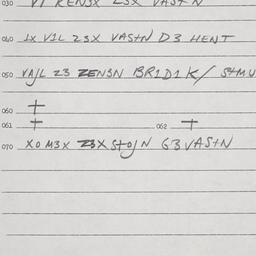 030 V1 KENSX Z3X VAS+N
040 1X V1L Z3X VAS+N D3 HENT
050 VAJL Z3 ZENSN BR1D1K/ S+MU
060 +
061 + 062 +
070 X0M3X Z3X S+OJN G3VAS+N